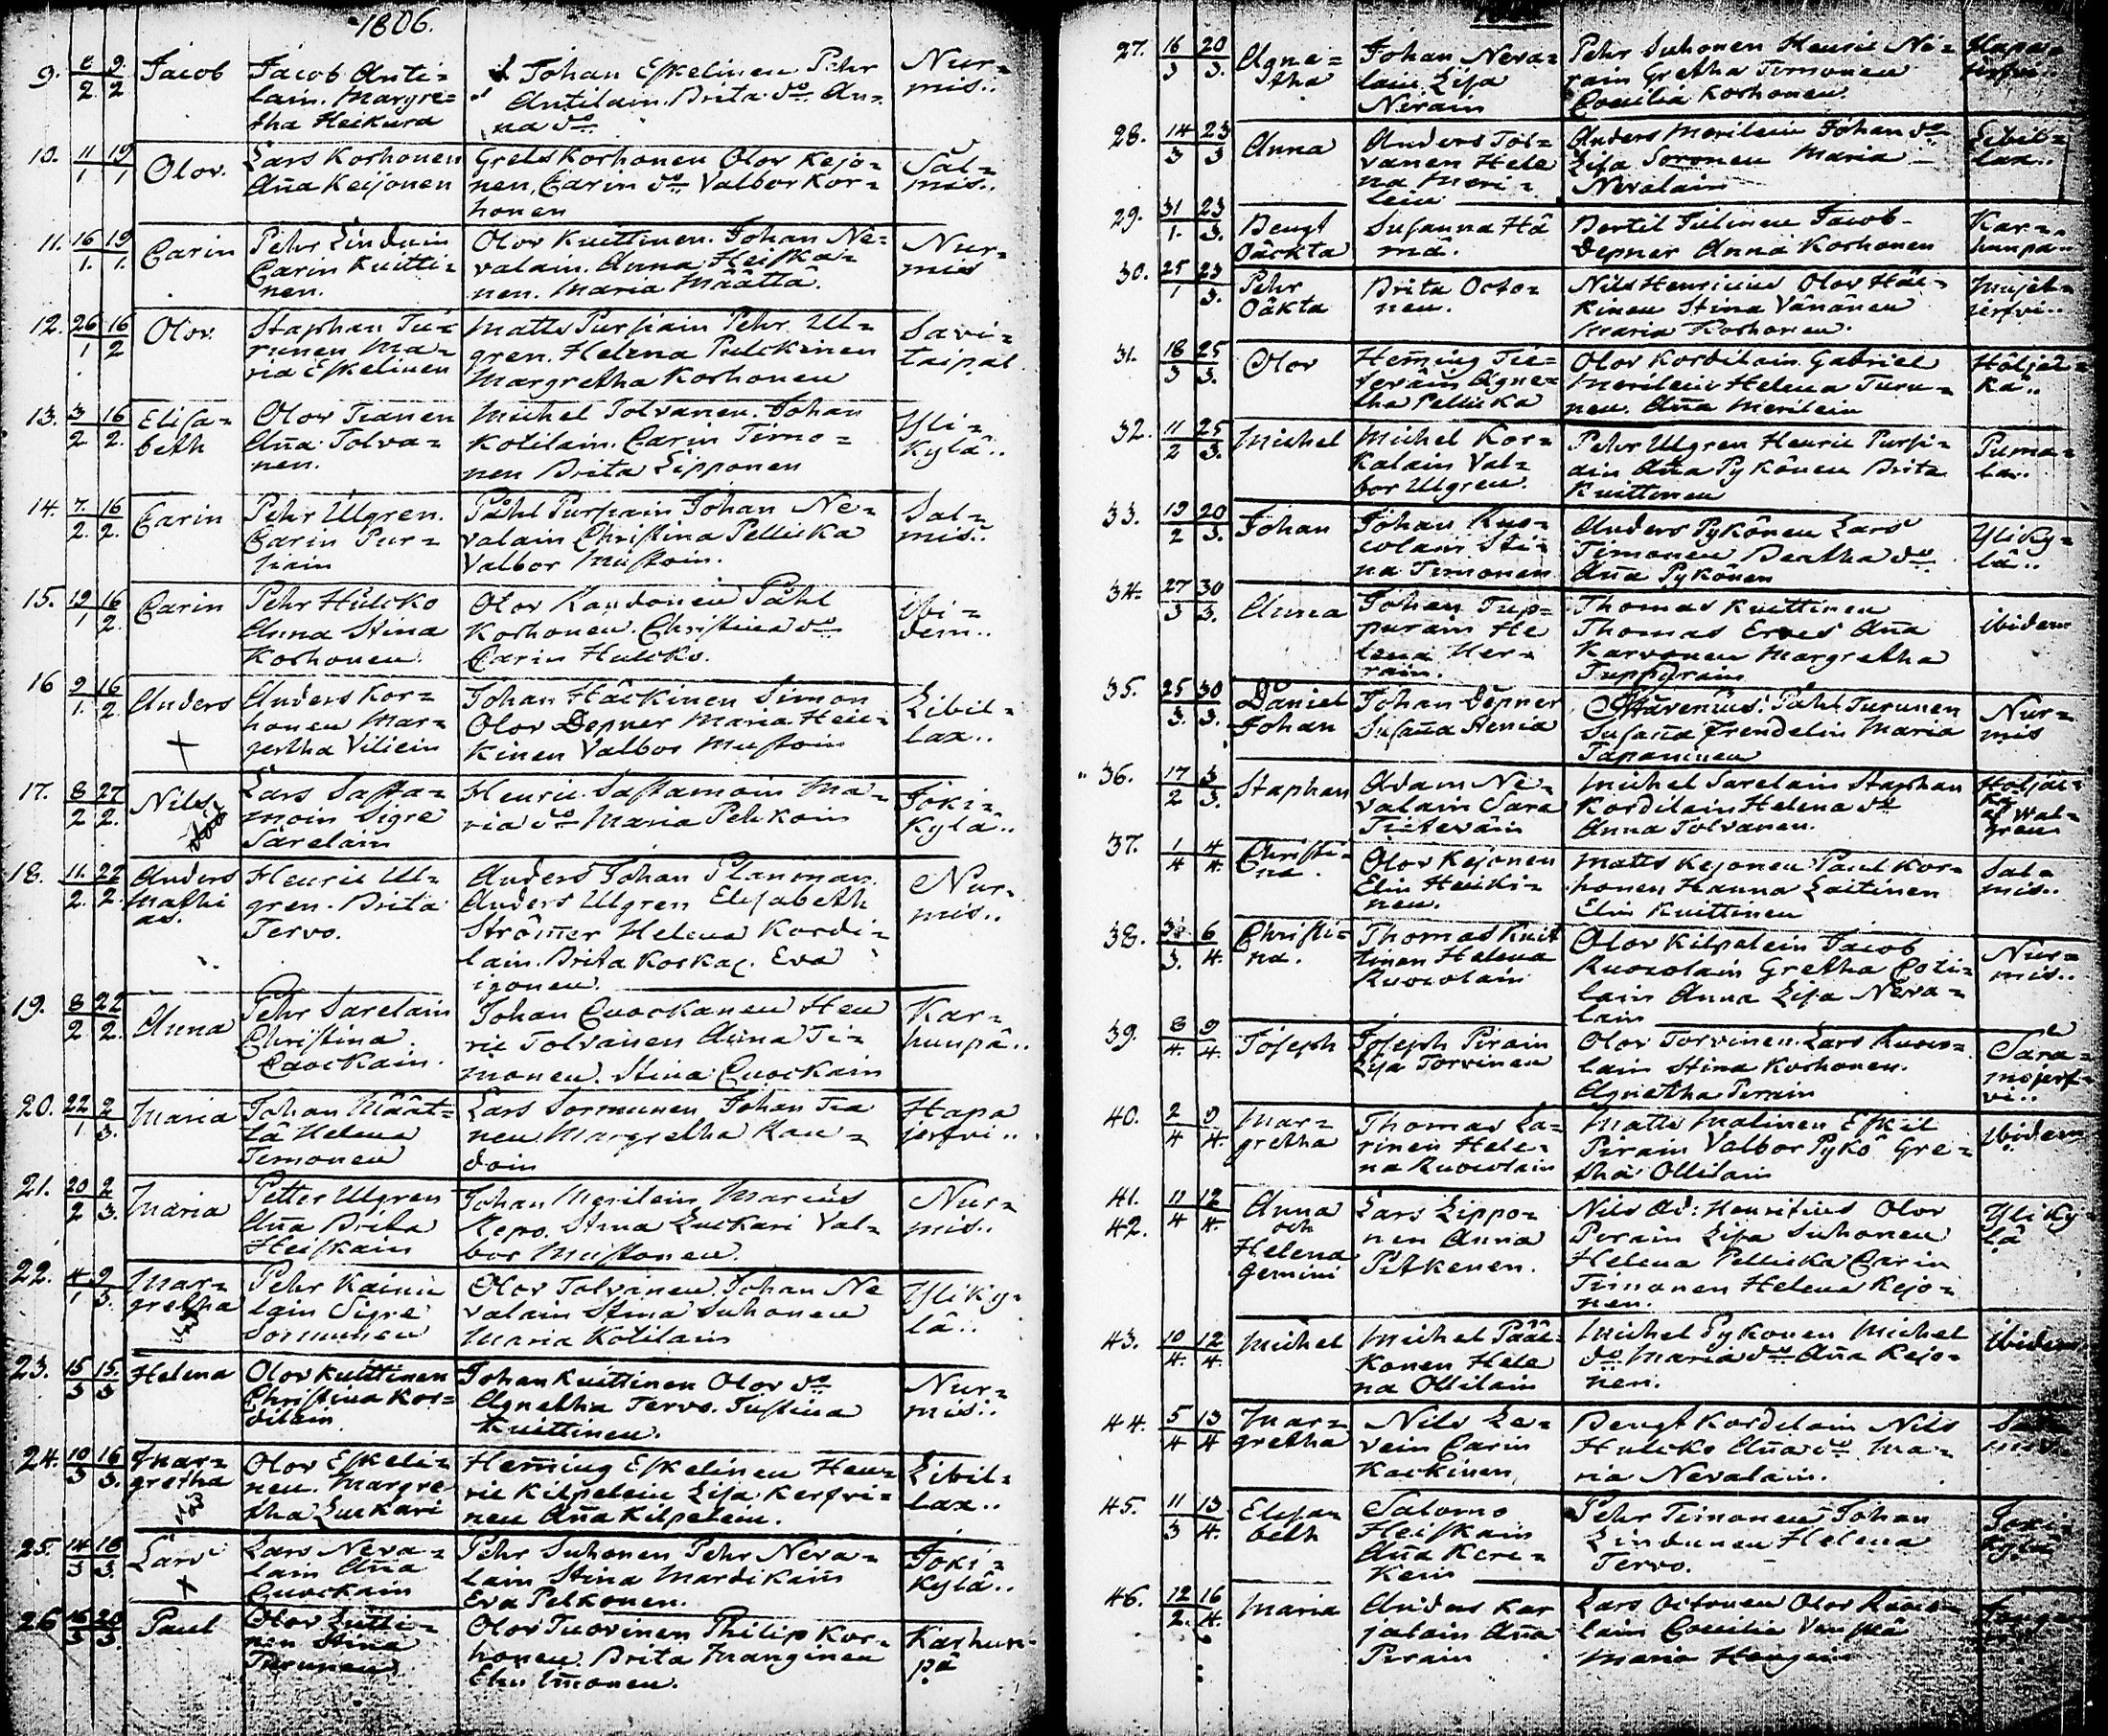 1806.
9. 8/2 9/2 Jacob
Jacob Anti=
lain. Margre=
tha Heikura
Johan Eskelinen Pehr
Antilain. Brita do. An=
na do.
Nur=
mis..
10. 11/1 19/1 Olov.
Lars Korhonen
Aña Keijonen
Grels Korhonen Olov Kejo=
nen, Carin do Valbor Kor=
honen
Sal=
mis..
11. 16/1. 19/1. Carin
Pehr Lindain
Carin Kuitti=
nen.
Olov Kuittinen. Johan Ne=
valain. Anna Heiska=
nen. Maria Määttä.
Nur=
mis
12. 26/1 16/2 Olov.
Staphan Tu=
runen Ma=
ria Eskelinen
Matts Pursiain Pehr Ul=
gren. Helena Pulckinen
Margretha Korhonen
Savi=
taipal
13. 3/2 16/2. Elisa=
beth
Olov Tianen
Aña Tolva=
nen.
Michel Tolvanen. Johan
Kotilain. Carin Timo=
nen Brita Lipponen
Yli=
Kylä..
14. 7/2. 16/2. Carin
Pehr Ulgren.
Carin Pur=
siain
Påhl Pursiain Johan Ne=
valain Christina Pellicka
Valbor Mustoin.
Sal=
mis..
15. 19/1 16/2. Carin
Pehr Hulcko
Anna Stina
Korhonen.
Olov Raudonen Påhl
Korhonen. Christina do
Carin Hulcko.
Ibi=
dem..
16 9/1. 16/2. Anders
Anders Kor=
honen Mar=
gertha Viliein
Johan Häckinen Simon
Olov Depner Maria Hei=
kinen Valbor Mustoin
Libil=
lax..
17. 8/2 27/2. Nils
Lars Sasta=
moin Sigre
Särelain
Henric Sastamoin Ma=
ria do Maria Pelkoin
Joki=
Kylä..
18. 11./2. 22/2. Anders
Mathi
as.
Henric Ul=
gren. Brita
Tervo.
Anders Johan Planman.
Anders Ulgren Elisabeth
Strömer Helena Kordi=
lain. Brita Koskac. Eva
igonen.
Nur=
mis..
19. 8/2 22/2. Anna
Pehr Sarelain
Christina.
Cuockain.
Johan Cuockanen Hen
ric Tolvanen Anna Ti=
monen. Stina Cuockain
Kar=
hunpä..
20. 22/1 2/3. Maria
Johan Määt=
tä Helena
Timonen
Lars Sormunen Johan Tia
nen Margretha Rau=
doin
Hapa
jerfvi..
21. 20/2 2/3. Maria
Petter Ulgren
Aña Brita
Heiskain
Johan Merilein Marcus
Repo. Stina Luckari Val=
bor Mustonen.
Nur=
mis..
22. 4/1 9/3. Mar=
gretha
Pehr Kainu
lain Sigre
Sormunen
Olov Tolvanen. Johan Ne
valain Stina Suhonen
Maria Kotilain
Yliky=
lä..
23. 15/3 15./3 Helena
Olov Kuittinen
Christina Kor=
dilain
Johan Kuittinen Olov do
Agnetha Tervo. Justina
Kuittinen.
Nur=
mis..
24. 10/3 16/3. Mar=
gretha
Olov Eskeli=
nen. Margre
tha Luckari
Heming Eskelinen Hen=
ric Kilpelein Lisa Kerfvi=
nen Aña Kilpelein.
Libil=
lax..
25. 14/3 18/3. Lars
Lars Neva=
lain Aña
Cuockain
Pehr Suhonen Pehr Neva=
lain Stina Mardikain
Eva Pelkonen.
Joki=
Kylä..
26 16/3 20/3. Paul
Olov Lutti=
nen Stina
Turunen
Olov Tuovinen Philip Kor=
honen. Brita Manginen
Elin Imonen.
Karhun=
pä
27. 16/3 20/3. Agne=
tha
Johan Neva=
lain, Lisa
Nirain
Pehr Suhonen Henric Ni=
rain Gretha Timonen
Coecilia Korhonen.
Hapa=
jerfvi..
28. 14/3 23/3 Anna
Anders Tol=
vanen Hele
na Meri=
lein
Anders Merilein Johan do
Lisa Sorsonen Maria
Nevalain
Libil=
lax..
29. 31/1. 23/3. Bengt
Oäckta
Susanna Hä
mä.
Bertil Tielinen Jacob
Depner Anna Korhonen
Kar=
hunpä
30. 25/1 23/3. Pehr
Oäkta
Brita Octo=
nen.
Nils Henricius Olov Häi=
kinen Stina Vänänen
Maria Korhonen.
Mujet=
jerfvi..
31. 18/3 25/3. Olov
Heming Tie=
teväin Agne=
tha Pellicka
Olov Kordilain Gabriel
Merilein Helena Turu=
nen. Aña Merilein
Höljä=
kä..
32. 11/2 25/3. Michel
Michel Kor=
kalain Val=
bor Ulgren.
Pehr Ulgren Henric Pursi=
ain Aña Pykönen Brita
Kuittinen
Puma=
la..
33. 19/2 20/3. Johan
Johan Ruo=
colain Sti=
na Timonen
Anders Pykönen Lars
Timonen Beatha do
Aña Pykönen
Yliky=
lä..
34. 27/3 30/3. Anna
Johan Tup=
purain He
lena Her=
rain.
Thomas Kuittinen
Thomas Erves Aña
Karvonen Margretha
Tuppurain
ibidem
35. 25/3. 30/3. Daniel
Johan
Johan Depner
Susaña Stenia
Stårenius. Påhl Turunen
Susaña Frendelin Maria
Tapaninen
Nur=
mis
36. 17/2 3/3. Staphan
Adam Ne=
valain Sara
Tieteväin
Michel Sarelain Staphan
Kordilain Helena do
Anna Tolvanen.
37. 1/4 4/4. Christi=
na
Olov Kejonen
Elin Heicki=
nen.
Matts Kejonen Paul Kor=
honen Hanna Laitinen
Elin Kuittinen
Sal=
mis..
38. 6/4. Christi=
na.
Thomas Kuit
tinen Helena
Ruocolain
Olov Kilpelein Jacob
Ruocolain Gretha Coti=
lain Anna Lisa Neva=
lain
Nur=
mis..
39. 8/4. 9/4. Joseph
Joseph Pirain
Lisa Torvinen
Olov Torvinen. Lars Ruoco=
lain Stina Korhonen.
Agnetha Pirain
Sara=
mojerf=
vi..
40. 2/4 9/4. Mar=
gretha
Thomas La=
rinen Hele=
na Ruocolain
Matts Malinen Eskil
Pirain Valbor Pykö Gre=
tha Ollilain
Ibidem
41. 11/4 12/4.
42.
Anna
och
Helena
Gemini
Lars Lippo=
nen Anna
Pitkenen.
Nils Ad: Henricius Olov
Pirain Lisa Suhonen
Helena Pellicka Carin
Timonen Helena Kejo=
nen.
Yliky=
lä
43. 10/4. 12/4. Michel
Michel Pääl=
konen Hele
na Ollilain
Michel Pykonen Michel
do Maria do Aña Kejo=
nen.
Ibidem
44. 5/4 13/4 Mar=
gretha
Nils Le=
vein Carin
Kackinen
Bengt Kordelain Nils
Hulcko Aña do Ma=
ria Nevalain.
45. 11/3 13/4. Elisa=
beth
Salomo
Heiskain
Aña Kere=
kein
Pehr Timonen Johan
Lindunen Helena
Tervo.
Joki=
kylä
46. 12/2. 16/4. Maria
Anders Kar
jalain Aña
Pirain
Lars Oitonen Olov Ruoco=
lain Coecilia Vänskä
Maria Hongin